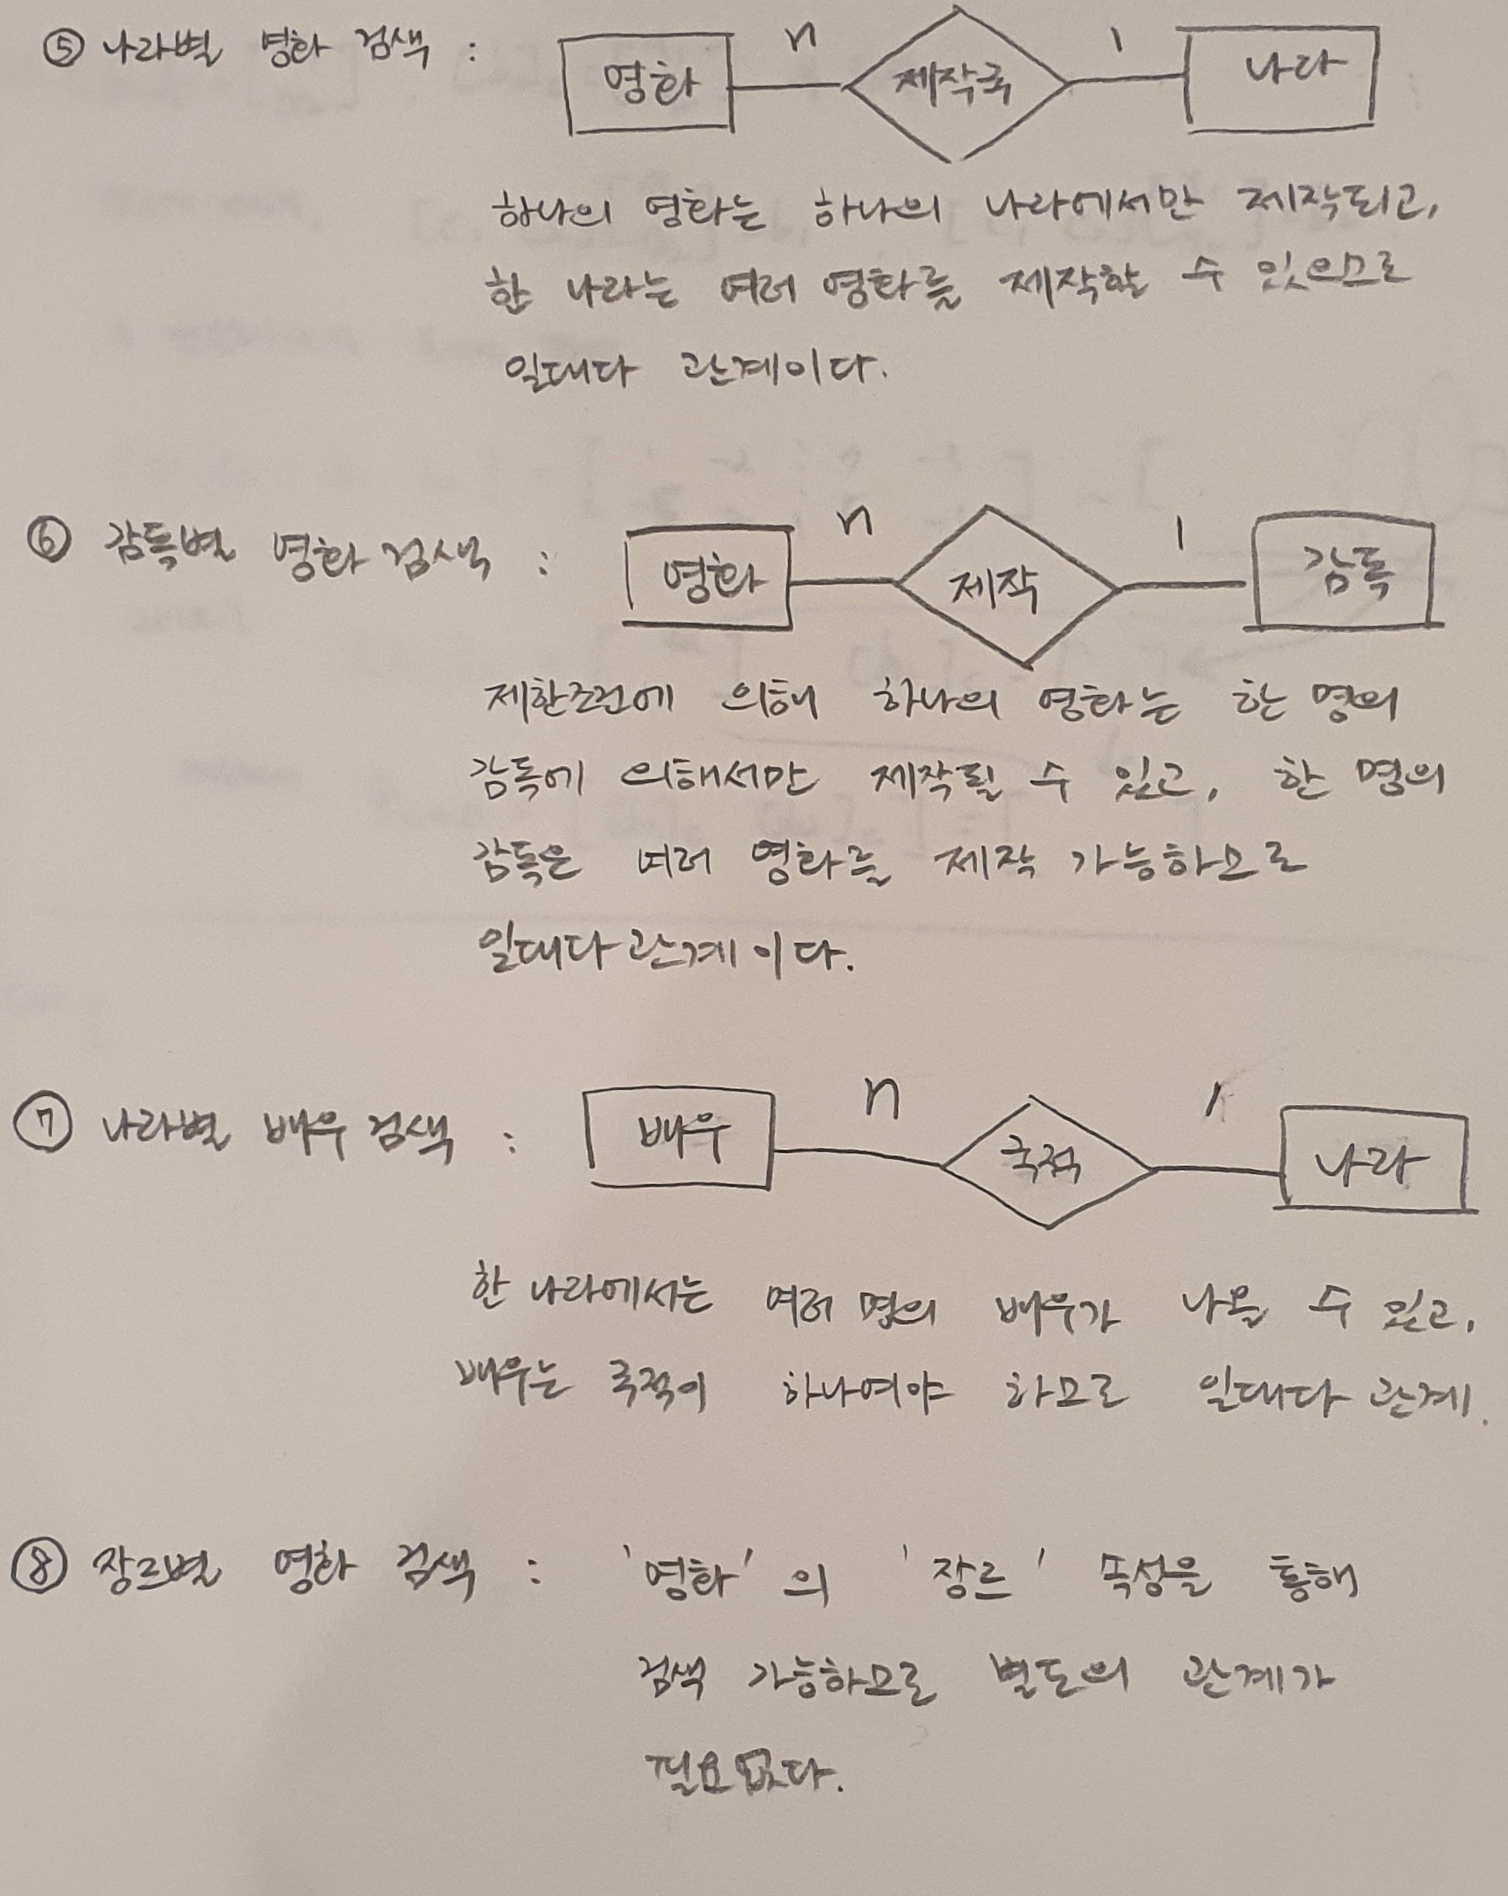 ⑤ 나라별 영화 검색 : 영화 n 제작국 1 나라
하나의 영화는 하나의 나라에서만 제작되고,
한 나라는 여러 영화를 제작할 수 있으므로
일대다 관계이다.
⑥ 감독별 영화 검색 : 영화 n 제작 1 감독
제한조건에 의해 하나의 영화는 한 명의
감독에 의해서만 제작될 수 있고, 한 명의
감독은 여러 영화를 제작 가능하므로
일대다 관계이다.
⑦ 나라별 배우 검색 : 배우 n 국적 1 나라
한 나라에서는 여러 명의 배우가 나올 수 있고,
배우는 국적이 하나여야 하므로 일대다 관계.
⑧ 장르별 영화 검색 : '영화'의 '장르' 속성을 통해
검색 가능하므로 별도의 관계가
필요없다.